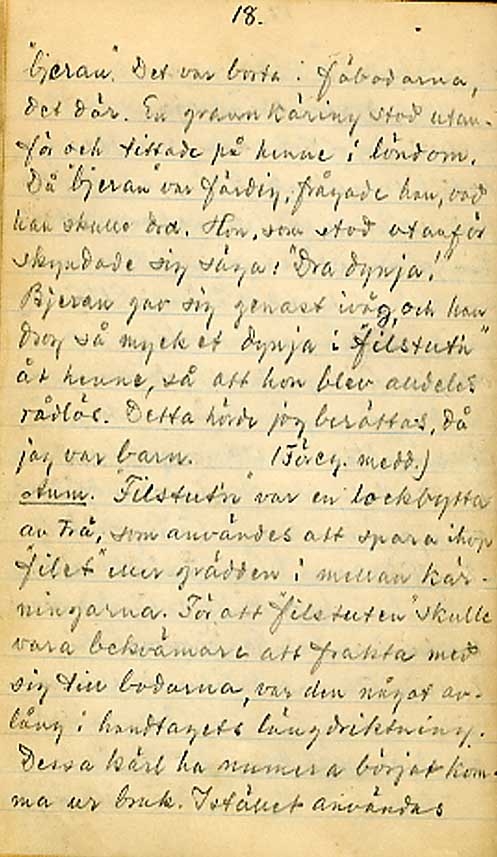 18.
"bjeran". Det var borta i fäbodarna,
det där. En grannkäring stod utan-
för och tittade på henne i löndom.
Då "bjeran" var färdig, frågade han, vad
han skulle dra. Hon, som stod utanför
skyndade sig säga: "Dra dynja!"
Bjeran gav sig genast iväg, och han
drog så mycket dynja i "filstut'n"
åt henne, så att hon blev alldeles
rådlös. Detta hörde jag berättas, då
jag var barn. (Föreg. medd.)
Anm. "Filstut'n" var en lockbytta
av trä, som användes att spara ihop
"filet" eller grädden i mellan kär-
ningarna. För att "filstuten" skulle
vara bekvämare att frakta med
sig till bodarna, var den något av-
lång i handtagets längdriktning.
Dessa kärl ha numera börjat kom-
ma ur bruk. Istället användas